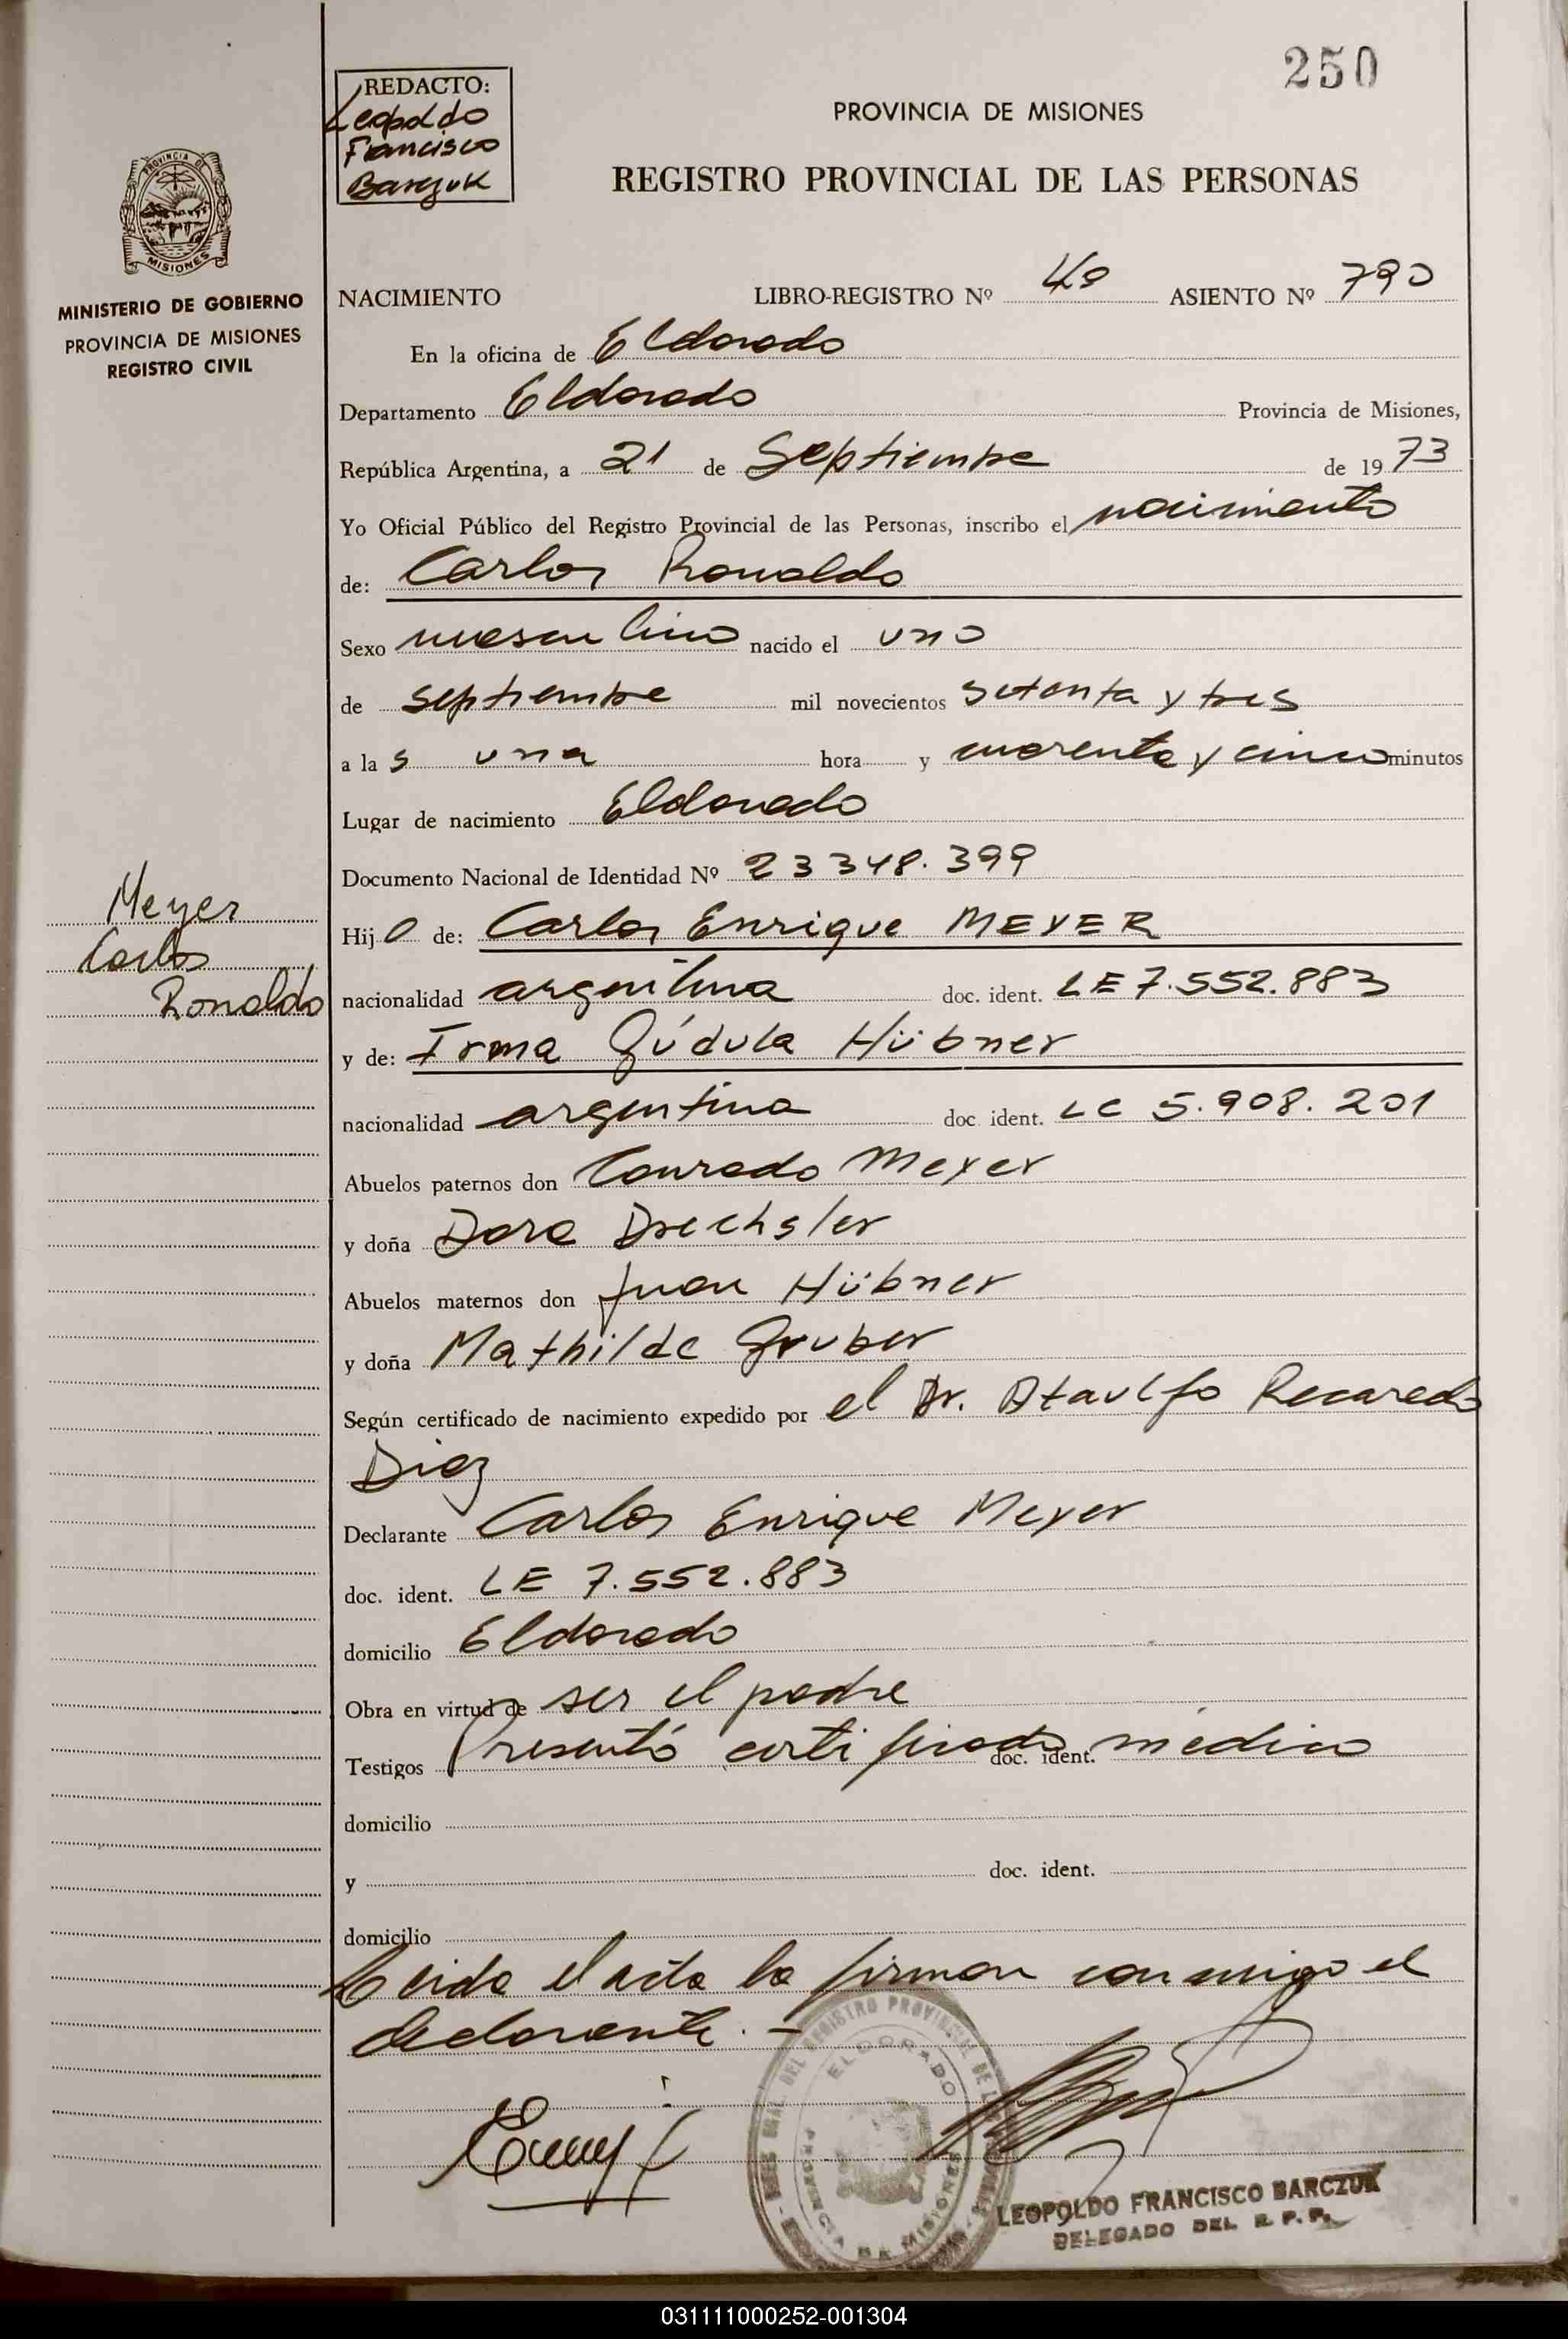 250
REDACTO:
Leopoldo
Francisco
Barczuk
PROVINCIA DE MISIONES
REGISTRO PROVINCIAL DE LAS PERSONAS
PROVINCIA DE
MISIONES
MINISTERIO DE GOBIERNO
PROVINCIA DE MISIONES
REGISTRO CIVIL
NACIMIENTO LIBRO-REGISTRO Nº 4º ASIENTO Nº 790
En la oficina de Eldorado
Departamento Eldorado Provincia de Misiones,
República Argentina, a 21 de Septiembre de 1973
Yo Oficial Público del Registro Provincial de las Personas, inscribo el nacimiento
de: Carlos Ronaldo
Sexo masculino nacido el uno
de septiembre mil novecientos setenta y tres
a las una hora y cuarenta y cinco minutos
Lugar de nacimiento Eldorado
Documento Nacional de Identidad Nº 23348.399
Meyer
Carlos
Ronaldo
Hijo de: Carlos Enrique MEYER
nacionalidad argentina doc. ident. LE 7.552.883
y de: Irma Gúdula Hübner
nacionalidad argentina doc ident. LC 5.908.201
Abuelos paternos don Conrado Meyer
y doña Dora Drechsler
Abuelos maternos don Juan Hübner
y doña Mathilde Gruber
Según certificado de nacimiento expedido por el Dr. Ataulfo Recaredo
Diaz
Declarante Carlos Enrique Meyer
doc. ident. LE 7.552.883
domicilio Eldorado
Obra en virtud de ser el padre
Testigos Presentó certificado doc. ident. médico
domicilio
y doc. ident.
domicilio
Leida el acta la firman conmigo el
declarante. -
ELDORADO
PROVINCIA DE MISIONES
LEOPOLDO FRANCISCO BARCZUK
DELEGADO DEL R. P. P.
031111000252-001304